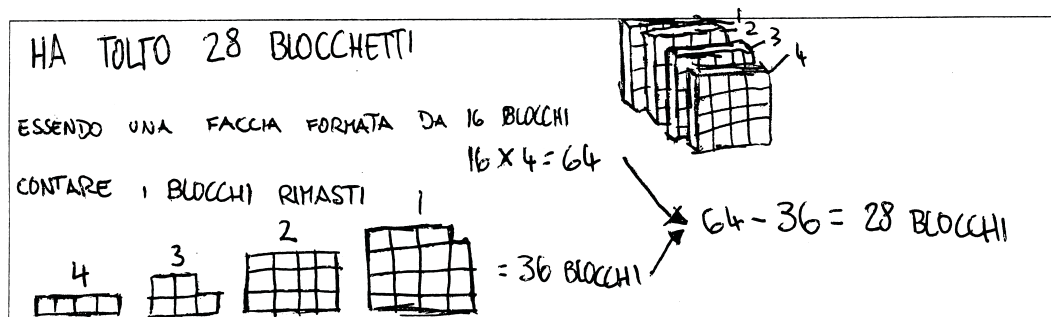 HA TOLTO 28 BLOCCHETTI
1
2
3
4
ESSENDO UNA FACCIA FORMATA DA 16 BLOCCHI
16 X 4 = 64
CONTARE I BLOCCHI RIMASTI
64 - 36 = 28 BLOCCHI
4 3 2 1
= 36 BLOCCHI